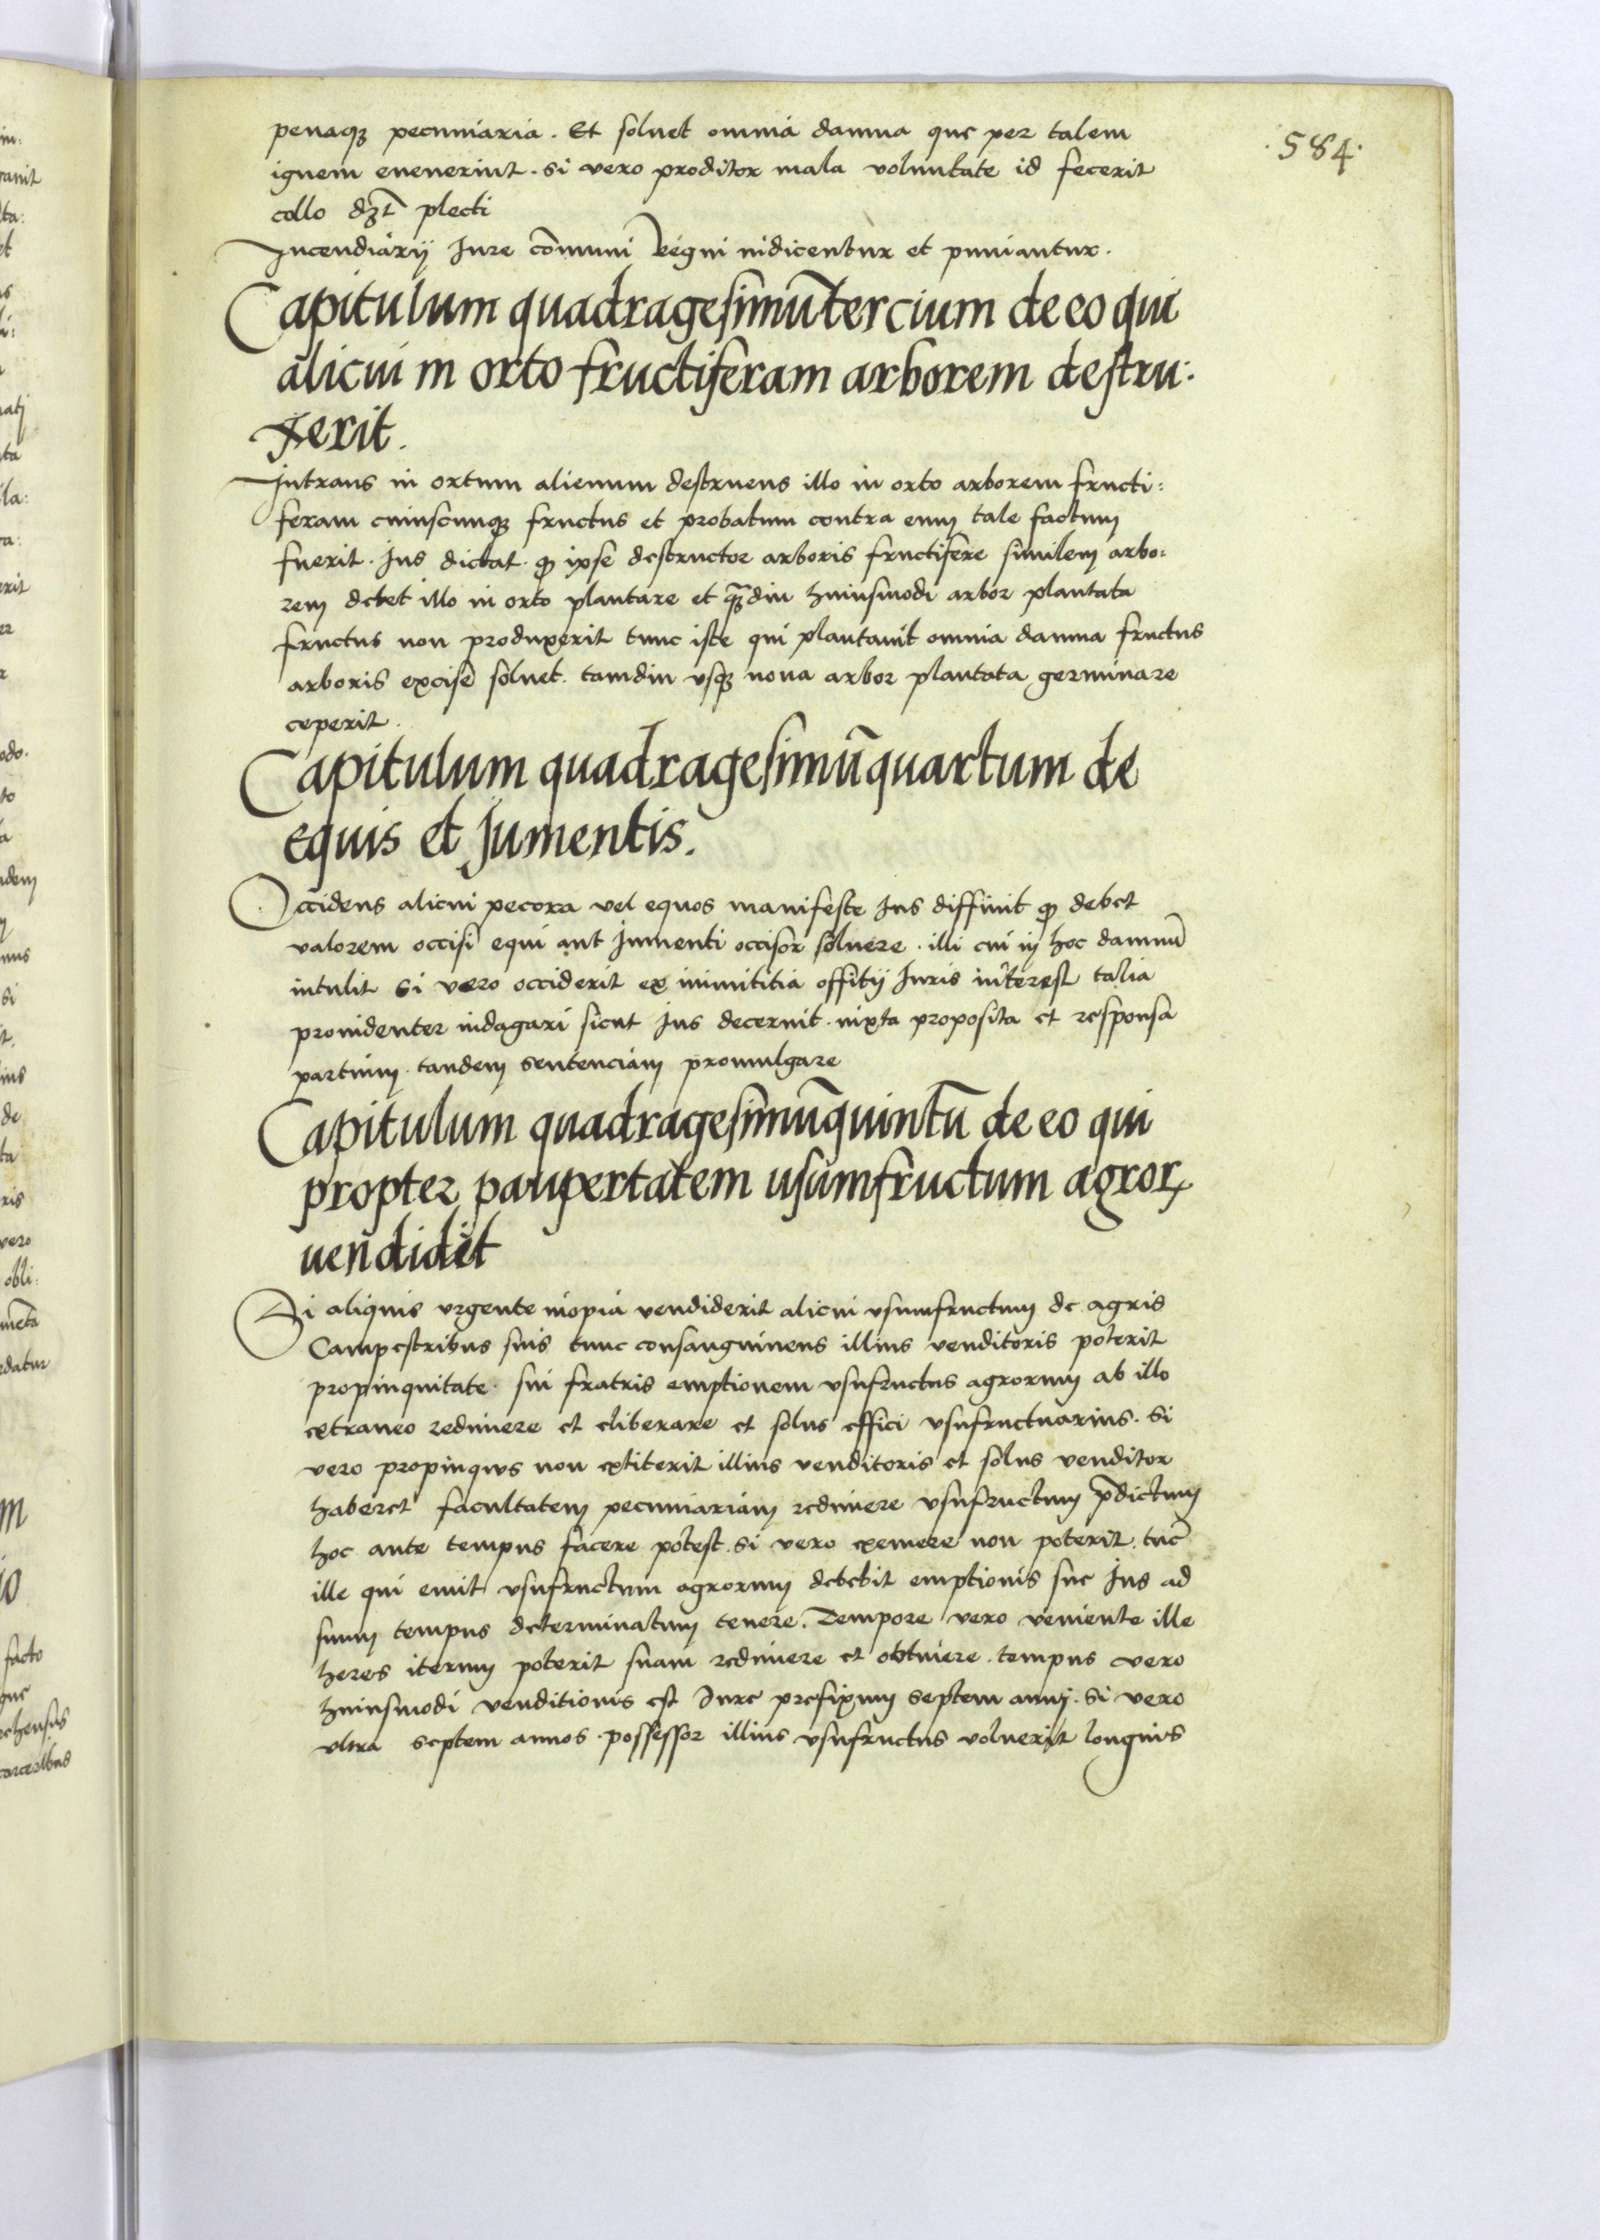 .584.
penaqꝫ pecuniaria . Et soluet omnia damna que per talem
ignem euenerint . si vero proditor mala voluntate id fecerit
collo dꝫt plecti
Incendiarij Iure cōmuni Regni iudicentur et puniantur .
Capitulum quadragesimūtercium de eo qui
alicui in orto fructiferam arborem destru:
xerit .
Intrans in ortum alienum destruens illo in orto arborem fructi:
feram cuiuscunqꝫ fructus et probatum contra eum tale factum
fuerit . Ius dictat . ꝙ ipse destructor arboris fructifere similem arbo:
rem debet illo in orto plantare et qꝫ̄diu huiusmodi arbor plantata
fructus non produxerit tunc iste qui plantauit omnia damna fructus
arboris excise soluet . tamdiu vsqꝫ noua arbor plantata germinare
ceperit .
Capitulum quadragesimūquartum de
equis et Jumentis .
Occidens alicui pecora vel equos manifeste Ius diffinit ꝙ debet
valorem occisi equi aut Jumenti occisor soluere . illi cui in hoc damnū
intulit si vero occiderit ex inimititia offitij Iuris interest talia
prouidenter indagari sicut Ius decernit . iuxta proposita et responsa
partium . tandem sentenciam promulgare
Capitulum quadragesimūquintū de eo qui
propter paupertatem usumfructum agroꝝ
uendidit
Si aliquis vrgente inopia vendiderit alicui vsumfructum de agris
Campestribus suis tunc consanguineus illius venditoris poterit
propinquitate . sui fratris emptionem vsufructus agrorum ab illo
extraneo redimere et eliberare et solus effici vsufructuarius . si
vero propinquus non extiterit illius venditoris et solus venditor
haberet facultatem pecuniariam redimere vsufructum p̄dictum
hoc ante tempus facere potest . si vero exemere non poterit . tūc
ille qui emit vsufructum agrorum debebit emptionis sue Ius ad
suum tempus determinatum tenere . Tempore vero veniente ille
heres iterum poterit suam redimere et obtinere . tempus vero
huiusmodi venditionis est Iure prefixum septem annj . si vero
vltra septem annos . possessor illius vsufructus voluerit longius